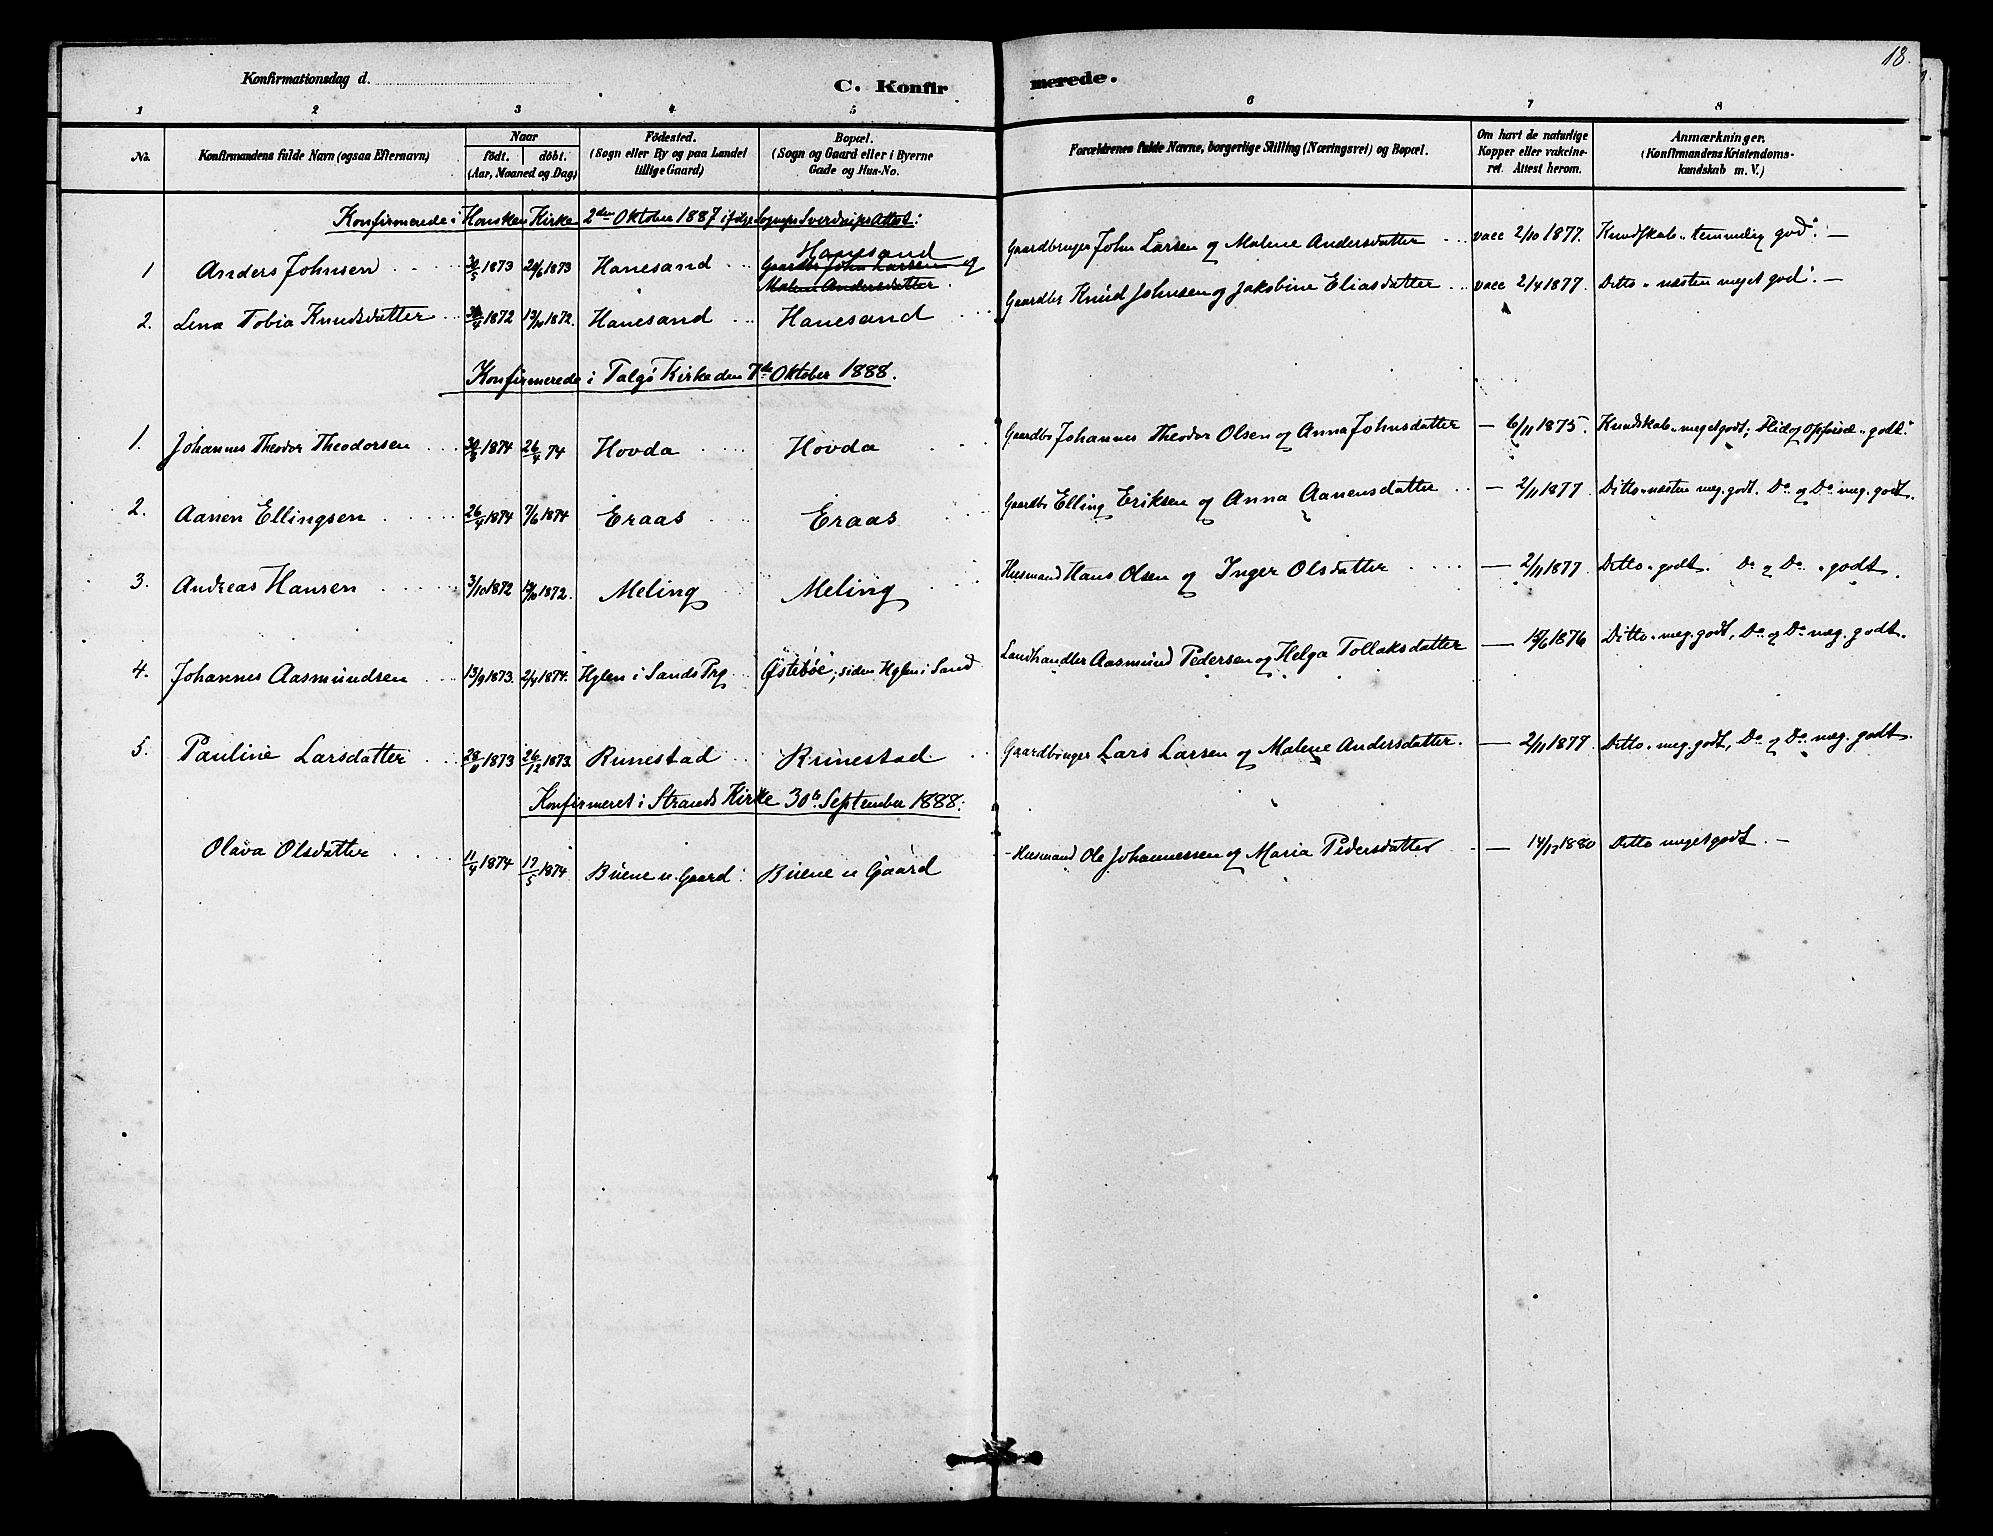 18.
Konfirmationsdag d.
C. Konfirmerede.
1 2 3 4 5 6 7 8
No. Konfirmandens fulde Navn (ogsaa Efternavn) Naar födt. döbt. (Aar, Maaned og Dag) Födested. (Sogn eller By og paa Landet tillige Gaard) Bopæl. (Sogn og Gaard eller i Byerne Gade og Hus-No. Forældrenes fulde Navne, borgerlige Stilling (Næringsvei) og Bopæl. Om havt de naturlige Kopper eller vakcineret. Attest herom. Anmærkninger. (Konfirmandens Kristendomskundskab m. V.)
Konfirmerede i Hauskens Kirke 2den Oktober 1887 ifølge Sognepr Sverdrups Attest:
1 Anders Johnsen 30/5 1873 1873 Hanesand Hanesand Gaardbr John Larsen og Malene Andersdatter. Gaardbruger John Larsen og Malene Andersdatter vacc 2/10 1877. Kundskab "temmelig god". —
2. Lena Tobia Knudsdatter 1872 13/10 1872. Hanesand Hanesand Gaardbr Knud Johnsen og Jakobine Eliasdatter vacc 2/4 1877. Ditto "næsten meget god". —
Konfirmerede i Talgö Kirke den 7de Oktober 1888.
1. Johannes Theodor Theodorsen 30/3 1874 26/4 74 Hovda Hovda Gaardbr Johannes Theodor Olsen og Anna Johnsdatter — 6/11 1875. Kundskab "meget godt; Flid og Opförsel "godt."
2. Aanen Ellingsen 26/4 1874 7/6 1874 Eraas Eraas Gaardbr Elling Eriksen og Anna Aanensdatter — 2/11 1877. Ditto "næsten meg. godt. Do og Do meg. godt.
3. Andreas Hansen 3/10 1872 13/10 1872. Meling Meling Husmand Hans Olsen og Inger Olsdatter — 2/11 1877 Ditto "godt. Do og Do "godt.
4. Johannes Aasmundsen 13/9 1873. 2/4 1874. Hylen i Sands Prg Östeböe, siden Hylen i Sand Landhandler Aasmund Pedersen og Helga Tollaksdatter — 15/6 1876 Ditto "meg. godt, Do og Do meg. godt.
5. Pauline Larsdatter 1873 26/12 1873. Runestad Runestad Gaardbruger Lars Larsen og Malene Andersdatter. — 2/11 1877 Ditto "meg. godt, Do og Do meg. godt.
Konfirmeret i Strands Kirke 30te September 1888:
Olava Olsdatter 11/4 1874 17/5 1874 Buene u. Gaard Buene u Gaard Husmand Ole Johannessen og Maria Pedersdatter — 14/12 1880 Ditto meget godt. —